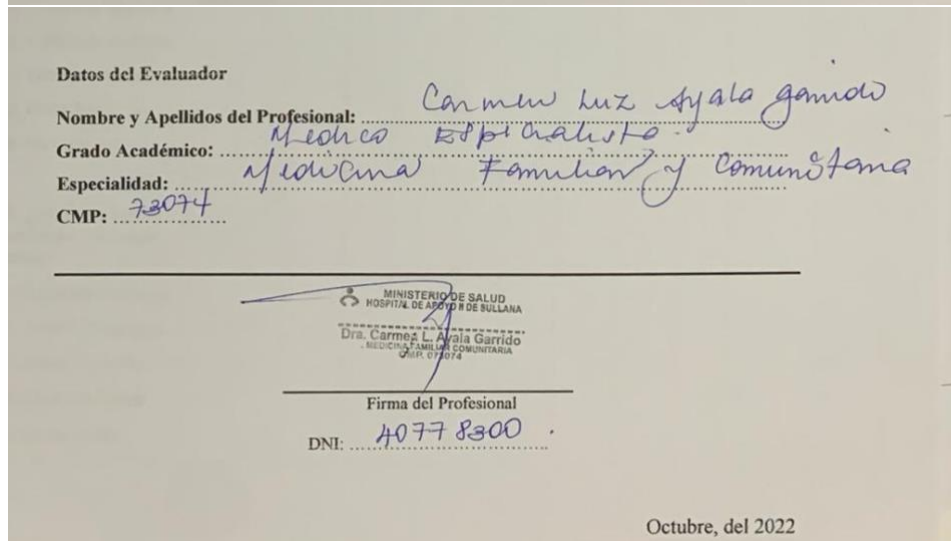 Datos del Evaluador
Nombre y Apellidos del Profesional: Carmen Luz Ayala Garrido
Grado Académico: Medico Especialista.
Especialidad: Medicina Familiar y Comunitaria
CMP: 73074
MINISTERIO DE SALUD
HOSPITAL DE APOYO II DE SULLANA
Dra. Carmen L. Ayala Garrido
MEDICINA FAMILIAR COMUNITARIA
CMP. 073074
Firma del Profesional
DNI: 40778300
Octubre, del 2022